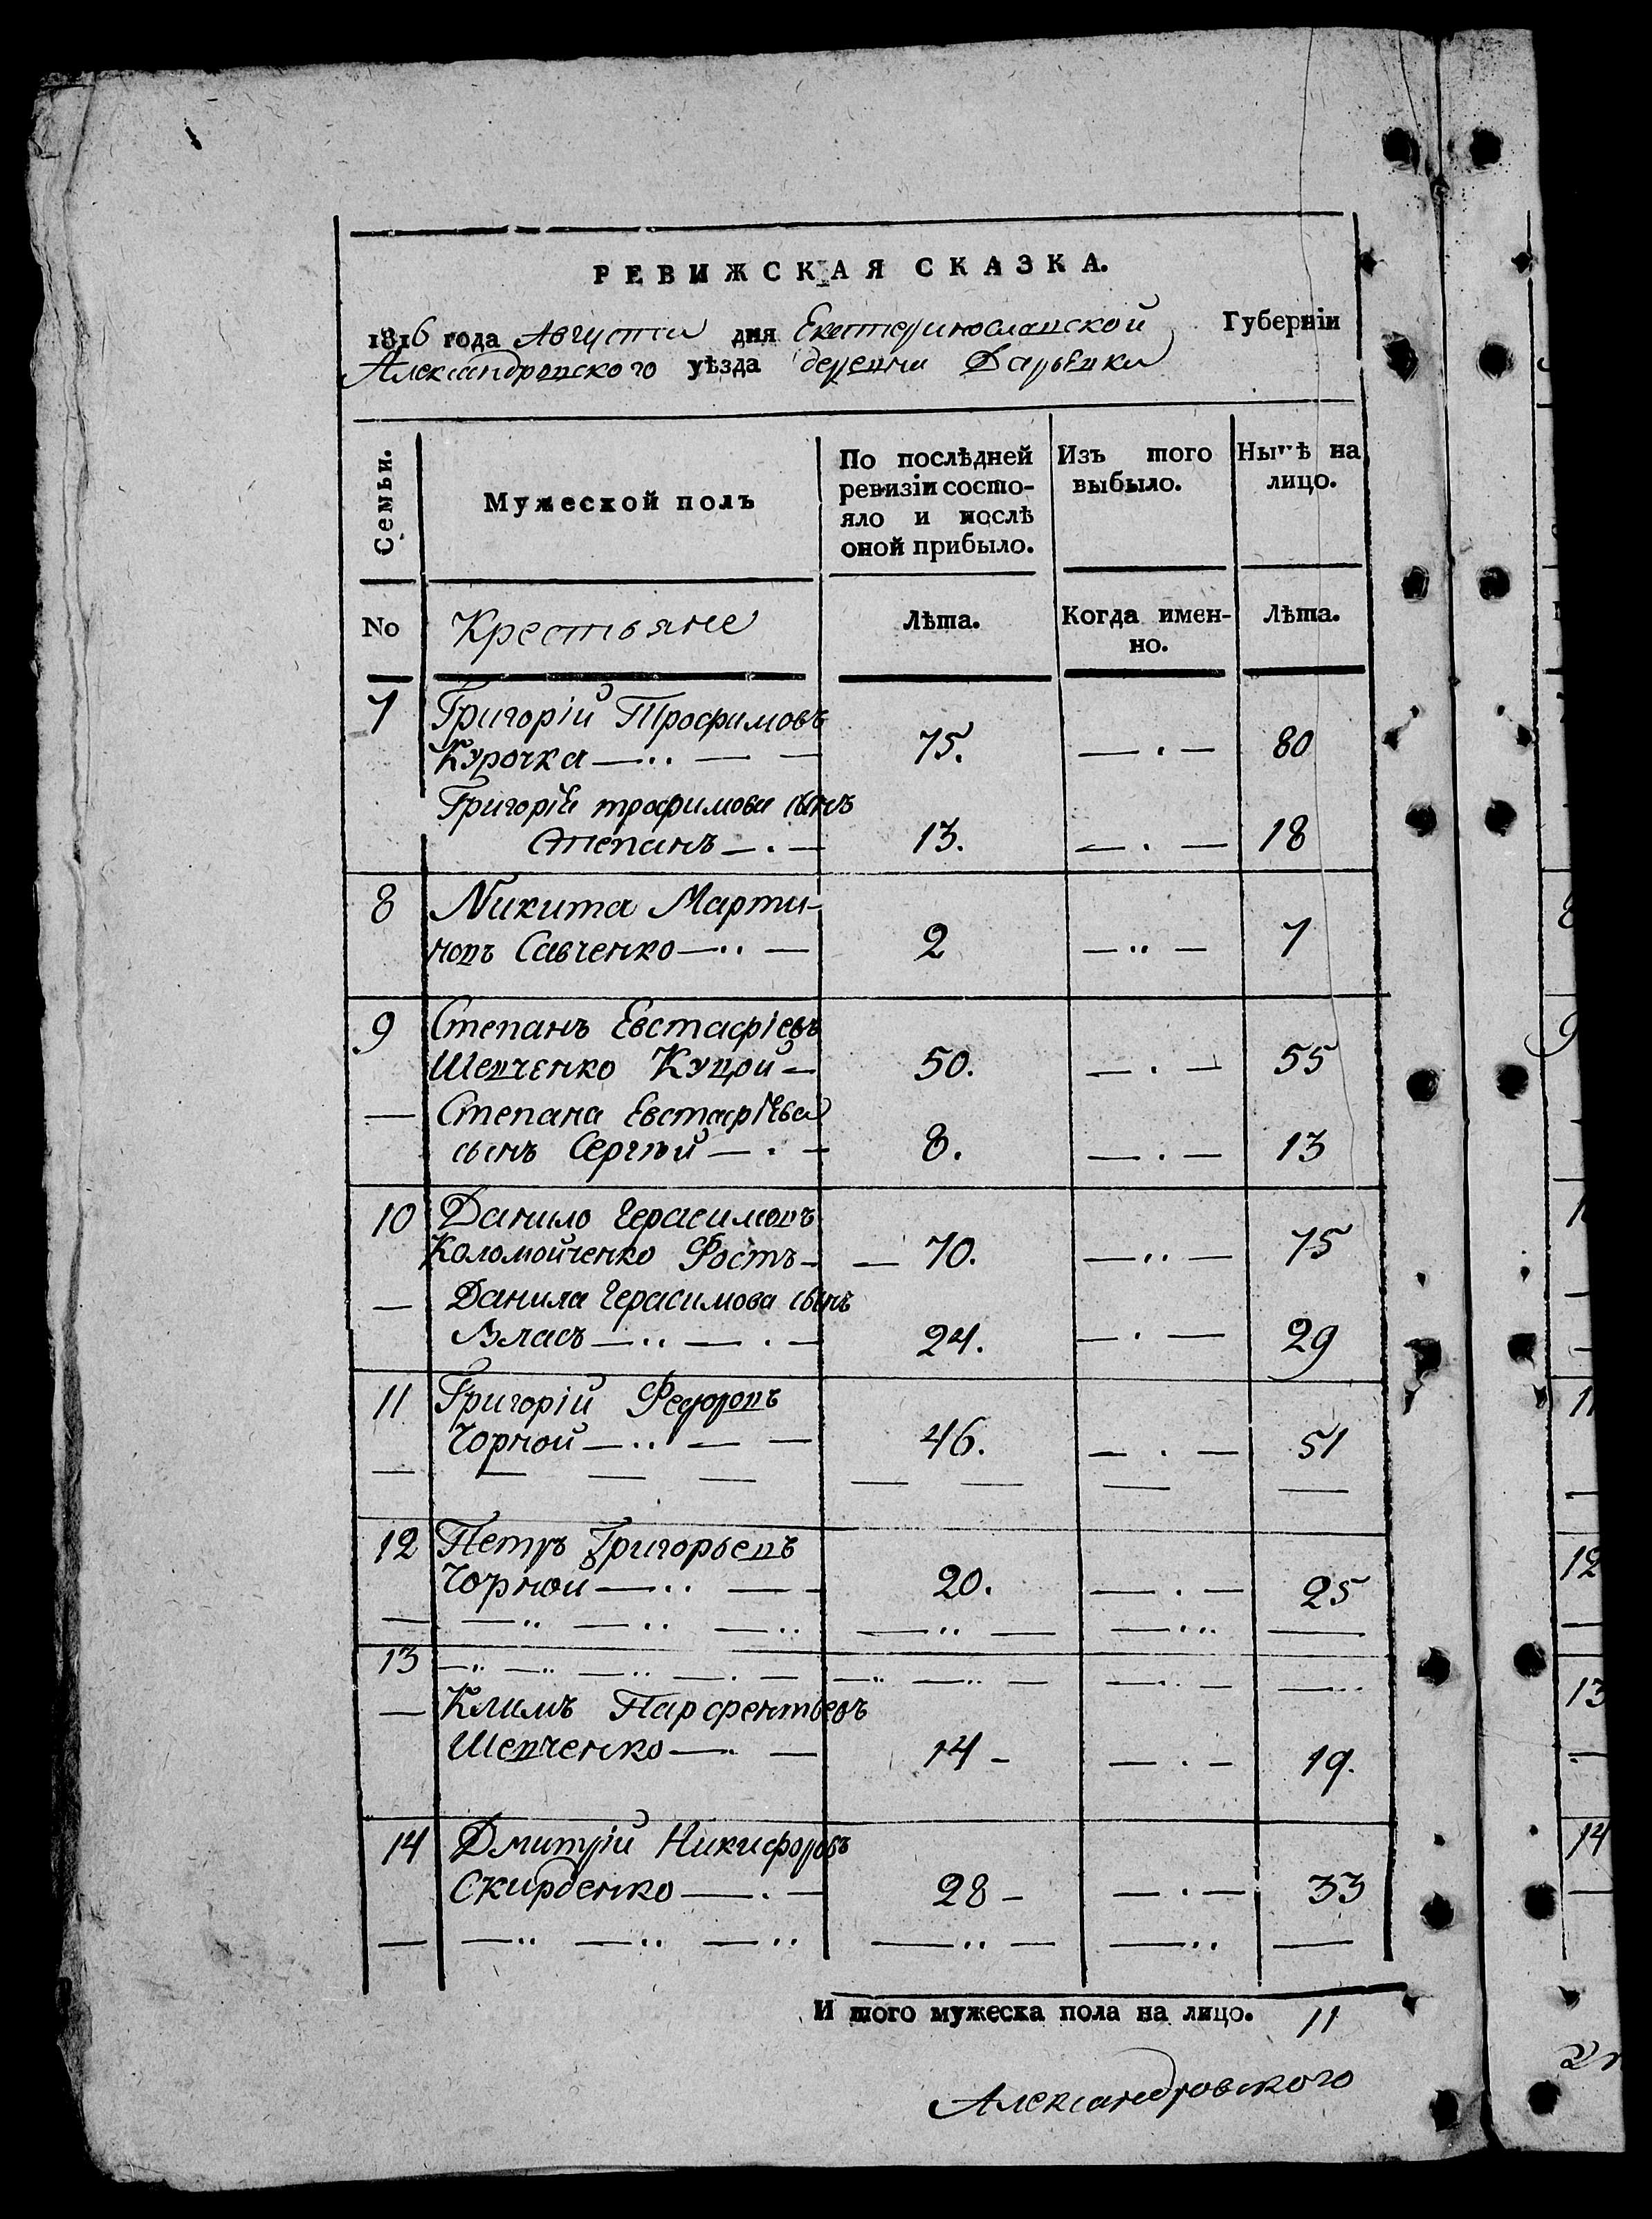 РЕВИЖСКАЯ СКАЗКА.
1816 года Августа дня Екатеринославской Губерніи
Александровского уѣзда деревни Дарьевки
Семьи.
Мужеской полъ
По послѣдней
ревизіи состо-
яло и послѣ
оной прибыло.
Изъ того
выбыло.
Нынѣ на
лицо.
No
Крестьяне
Лѣта.
Когда имен-
но.
Лѣта.
7 Григорій Трофимовъ
Курочка 75. 80
Григорія трофимова сынъ
Степанъ 13. 18
8 Никита Марти-
новъ Савченко 2 7
9 Степанъ Евстафіевъ
Шевченко 50. 55
Степана Евстафіева
сынъ Сергѣй 8. 13
10 Данило Герасимовъ
Коломойченко 70. 75
Данила Герасимова сынъ
Власъ 24. 29
11 Григорій Федоровъ
Чорной 46. 51
12 Петръ Григорьевъ
Чорной 20. 25
13
Климъ Парфентьевъ
Шевченко 14 19.
14 Дмитрій Никифоровъ
Скирденко 28 33
И того мужеска пола на лицо. 11
Александровского